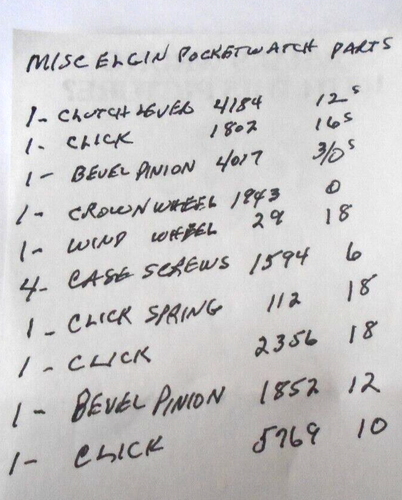 MISC ELGIN POCKETWATCH PARTS
1- CLUTCH LEVER 4184 12s
1- CLICK 1802 16s
1- BEVEL PINION 4017 3/0s
1- CROWN WHEEL 1943 0
1- WIND WHEEL 29 18
4- CASE SCREWS 1594 6
1- CLICK SPRING 112 18
1- CLICK 2356 18
1- BEVEL PINION 1852 12
1- CLICK 5769 10